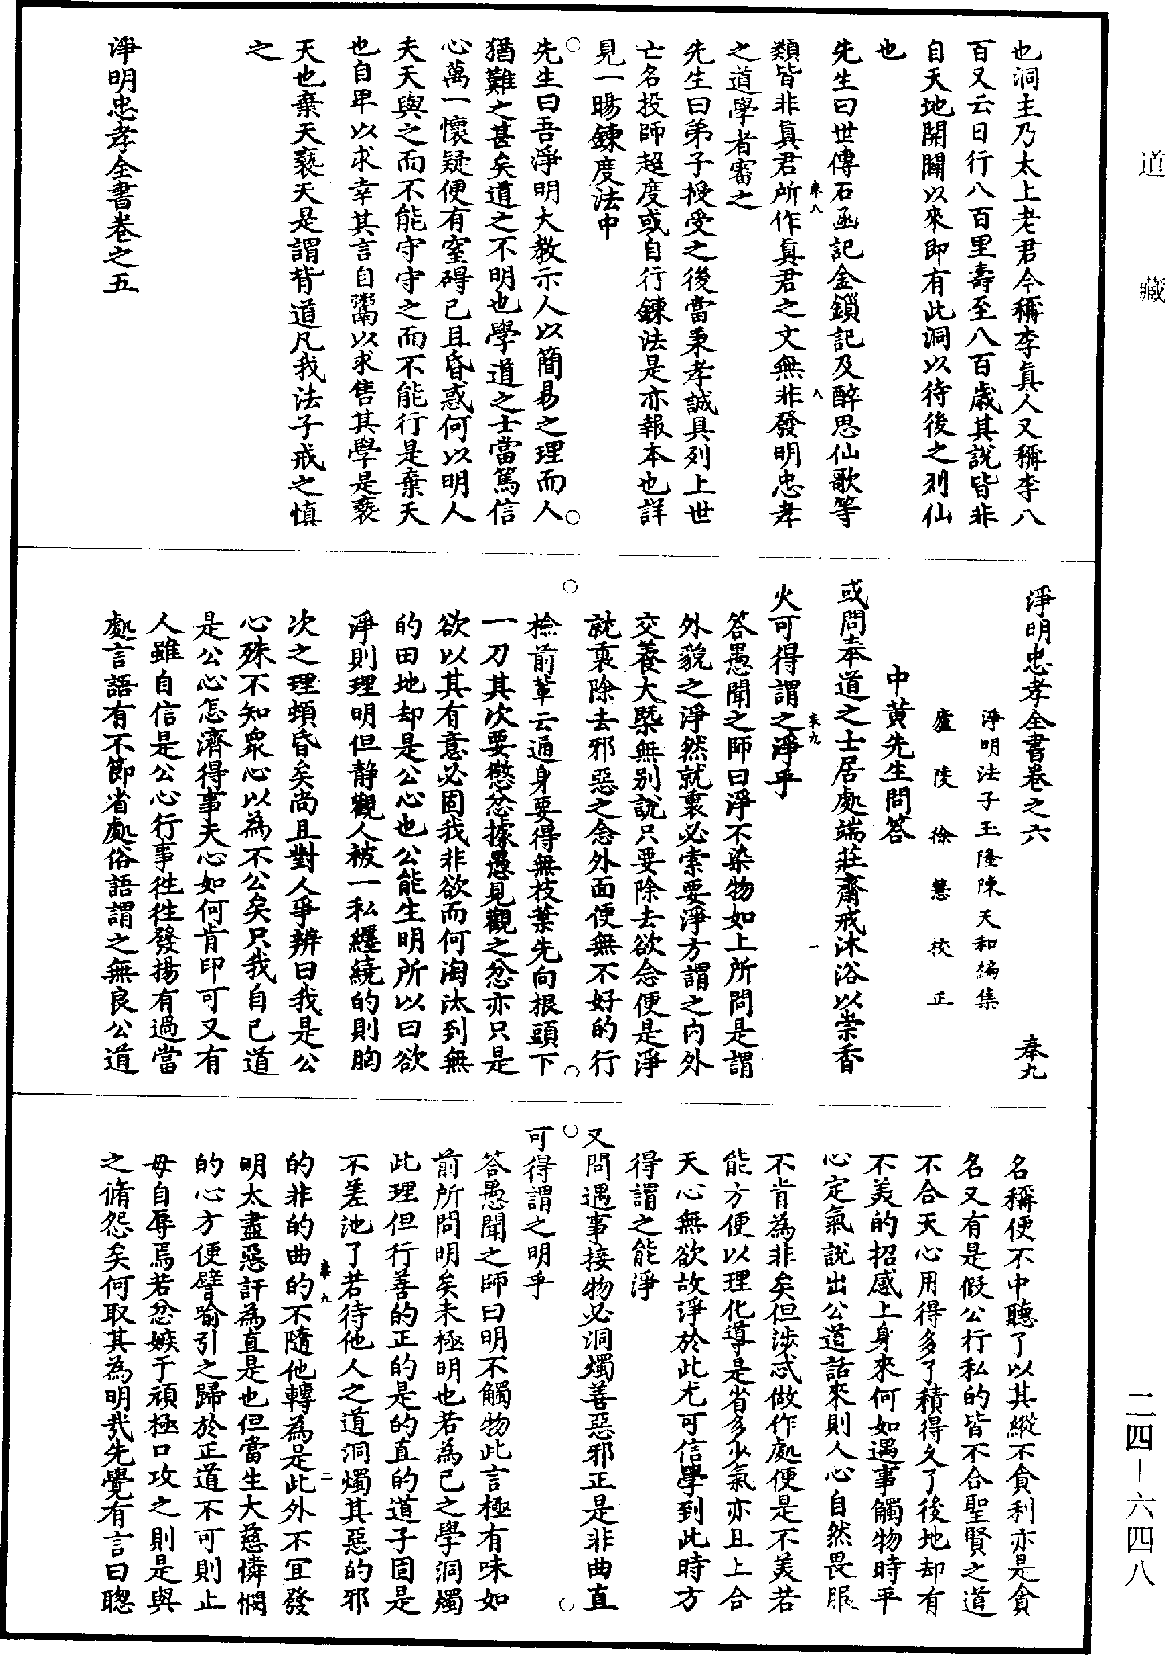 道藏
也洞主乃太上老君今稱李真人又稱李八
百又云日行八百里壽至八百歲其說皆非
自天地開闢以來即有此洞以待後之列仙
也
先生曰世傳石函記金鎖記及醉思仙歌等
類皆非真君所作真君之文無非發明忠孝
之道學者審之
先生曰弟子授受之後當秉孝誠具列上世
亡名投師超度或自行鍊法是亦報本也詳
見一暘鍊度法中
先生曰吾淨明大教示人以簡易之理而人
猶難之甚矣道之不明也學道之士當篤信
心萬一懷疑便有窒碍己且昏惑何以明人
夫天與之而不能守守之而不能行是棄天
也自卑以求幸其言自鬻以求售其學是褻
天也棄天褻天是謂背道凡我法子戒之慎
之
淨明忠孝全書卷之五
淨明忠孝全書卷之六 奉九
淨明法子玉隆陳天和編集
廬陵徐慧校正
中黃先生問答
或問奉道之士居處端莊齋戒沐浴以崇香
火可得謂之淨乎
答愚聞之師曰淨不染物如上所問是謂
外貌之淨然就裏必索要淨方謂之內外
交養大槩無別說只要除去欲念便是淨
就裏除去邪惡之念外面便無不好的行
檢前輩云通身要得無枝葉先向根頭下
一刀其次要懲忿據愚見觀之忿亦只是
欲以其有意必固我非欲而何淘汰到無
的田地却是公心也公能生明所以曰欲
淨則理明但静觀人被一私纏繞的則胸
次之理頓昏矣尚且對人爭辨曰我是公
心殊不知衆心以為不公矣只我自己道
是公心怎濟得事夫心如何肯印可又有
人雖自信是公心行事徃徃發揚有過當
處言語有不節省處俗語謂之無良公道
名稱便不中聽了以其縱不貪利亦是貪
名又有是假公行私的皆不合聖賢之道
不合天心用得多了積得久了後地却有
不美的招感上身來何如遇事觸物時平
心定氣說出公道話來則人心自然畏服
不肯為非矣但涉忒做作處便是不美若
能方便以理化導是省多少氣亦且上合
天心無欲故淨於此尤可信學到此時方
得謂之能淨
又問遇事接物必洞燭善惡邪正是非曲直
可得謂之明乎
答愚聞之師曰明不觸物此言極有味如
前所問明矣未極明也若為己之學洞燭
此理但行善的正的是的直的道子固是
不差池了若待他人之道洞燭其惡的邪
的非的曲的不隨他轉為是此外不宜發
明太盡惡訐為直是也但當生大慈憐憫
的心方便譬喻引之歸於正道不可則止
毋自辱焉若忿嫉于頑極口攻之則是與
之脩怨矣何取其為明哉先覺有言曰聰
二四-六四八